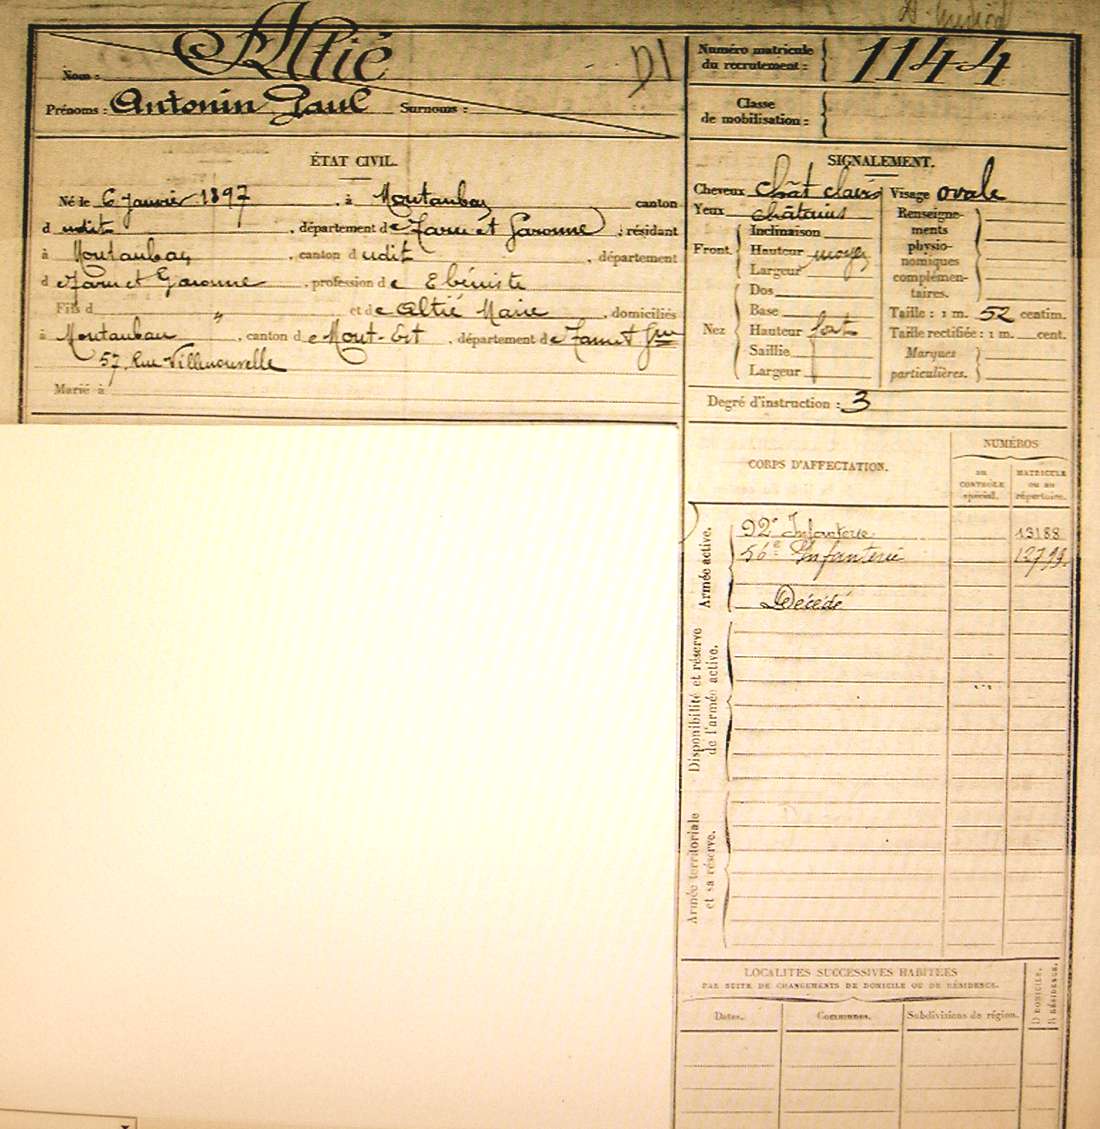 Nom : Altié
Prénoms : Antonin Paul Surnoms :
D1
Numéro matricule
du recrutement : 1144
Classe
de mobilisation :
ÉTAT CIVIL.
Né le 6 janvier 1897, à Montauban canton
d udit, département de Tarn et Garonne, résidant
à Montauban, canton d udit, département
d e Tarn et Garonne, profession de Ebéniste
Fils d " et de Altié Marie, domiciliés
à Montauban, canton de Mont-Est, département de Tarn et Gne
57, Rue Villenouvelle
Marié à
SIGNALEMENT.
Cheveux chât clairs
Yeux châtains
Front
Inclinaison
Hauteur moyen
Largeur
Nez
Dos
Base
Hauteur fort
Saillie
Largeur
Visage ovale
Renseigne-
ments
physio-
nomiques
complémen-
taires.
Taille : 1 m. 52 centim.
Taille rectifiée : 1 m. cent.
Marques
particulières.
Degré d'instruction : 3
CORPS D'AFFECTATION.
NUMÉROS
au
CONTROLE
spécial.
MATRICULE
ou au
répertoire.
Armée active.
92e Infanterie 13188
56e Infanterie
Décédé
Disponibilité et réserve
de l'armée active.
Armée territoriale
et sa réserve.
LOCALITÉS SUCCESSIVES HABITÉES
PAR SUITE DE CHANGEMENTS DE DOMICILE OU DE RÉSIDENCE.
Dates. Communes. Subdivisions de région.
D DOMICILE.
R RÉSIDENCE.